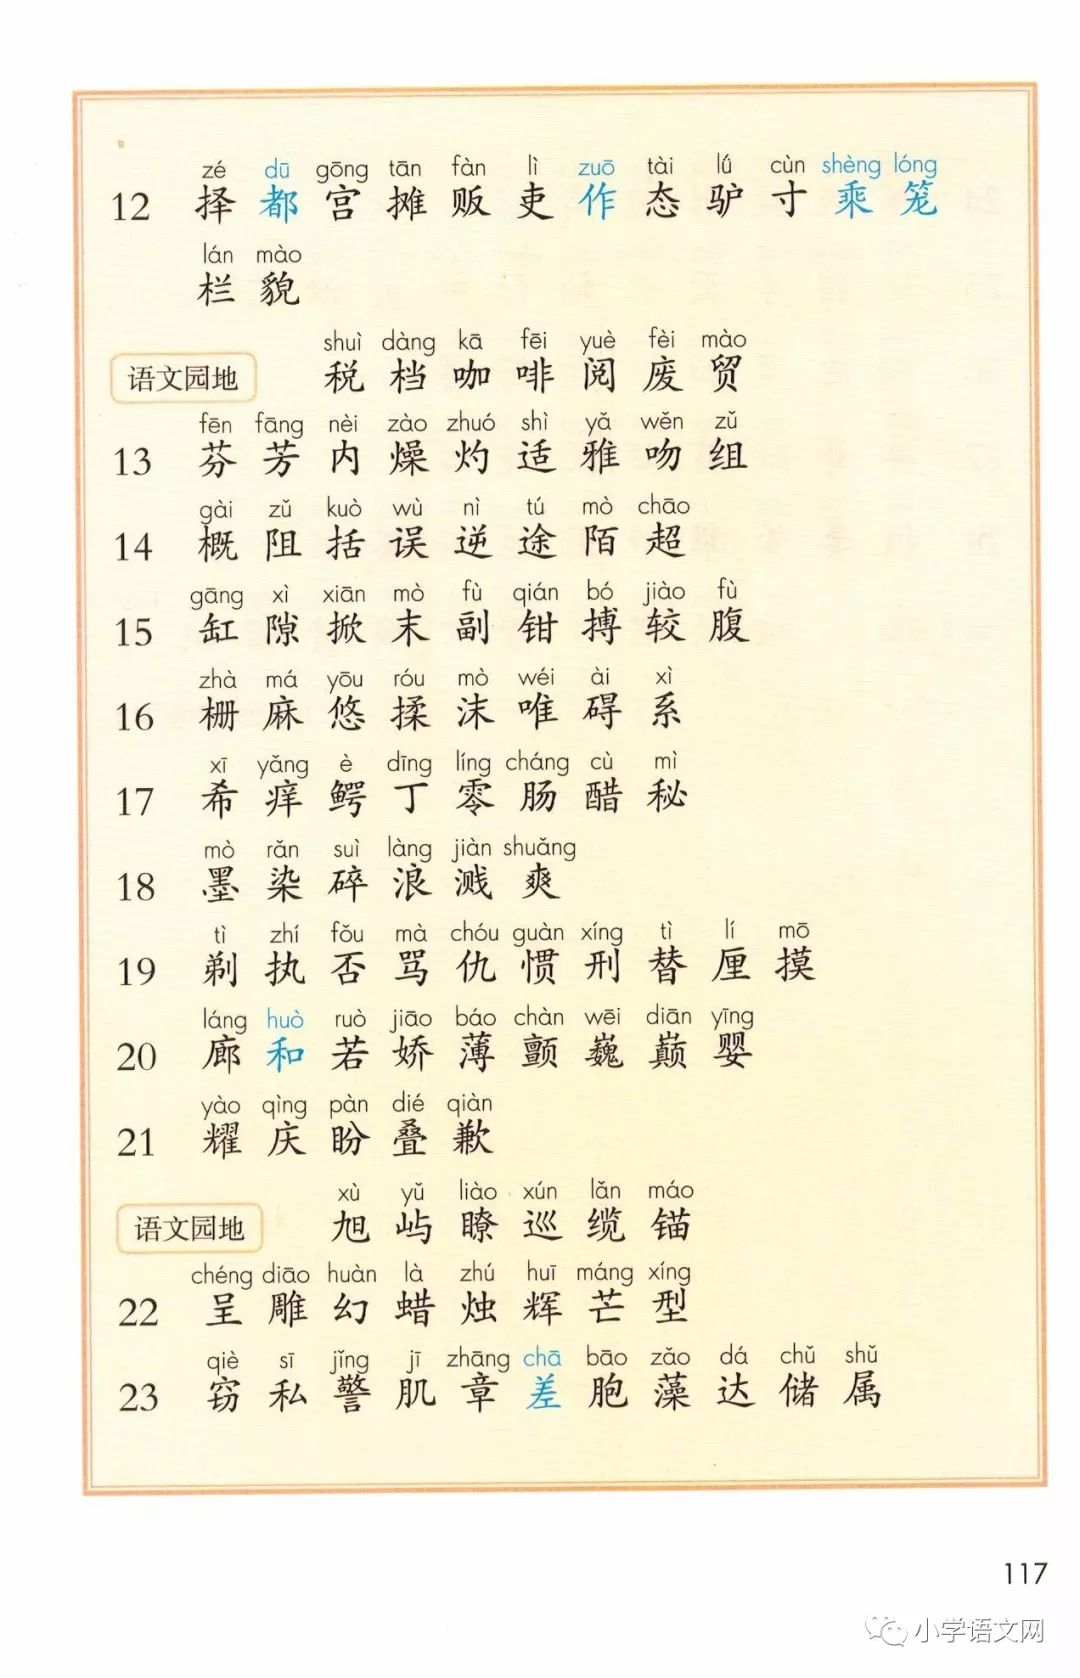 zé dū gōng tān fàn lì zuō tài lǘ cùn shèng lóng
12 择 都 宫 摊 贩 吏 作 态 驴 寸 乘 笼
lán mào
栏 貌
shuì dàng kā fēi yuè fèi mào
语文园地 税 档 咖 啡 阅 废 贸
fēn fāng nèi zào zhuó shì yǎ wěn zǔ
13 芬 芳 内 燥 灼 适 雅 吻 组
gài zǔ kuò wù nì tú mò chāo
14 概 阻 括 误 逆 途 陌 超
gāng xì xiān mò fù qián bó jiào fù
15 缸 隙 掀 末 副 钳 搏 较 腹
zhà má yōu róu mò wéi ài xì
16 栅 麻 悠 揉 沫 唯 碍 系
xī yǎng è dīng líng cháng cù mì
17 希 痒 鳄 丁 零 肠 醋 秘
mò rǎn suì làng jiàn shuǎng
18 墨 染 碎 浪 溅 爽
tì zhí fǒu mà chóu guàn xíng tì lí mō
19 剃 执 否 骂 仇 惯 刑 替 厘 摸
láng huò ruò jiāo báo chàn wēi diān yīng
20 廊 和 若 娇 薄 颤 巍 巅 婴
yào qìng pàn dié qiàn
21 耀 庆 盼 叠 歉
xù yǔ liào xún lǎn máo
语文园地 旭 屿 瞭 巡 缆 锚
chéng diāo huàn là zhú huī máng xíng
22 呈 雕 幻 蜡 烛 辉 芒 型
qiè sī jǐng jī zhāng chā bāo zǎo dá chǔ shǔ
23 窃 私 警 肌 章 差 胞 藻 达 储 属
117
小学语文网